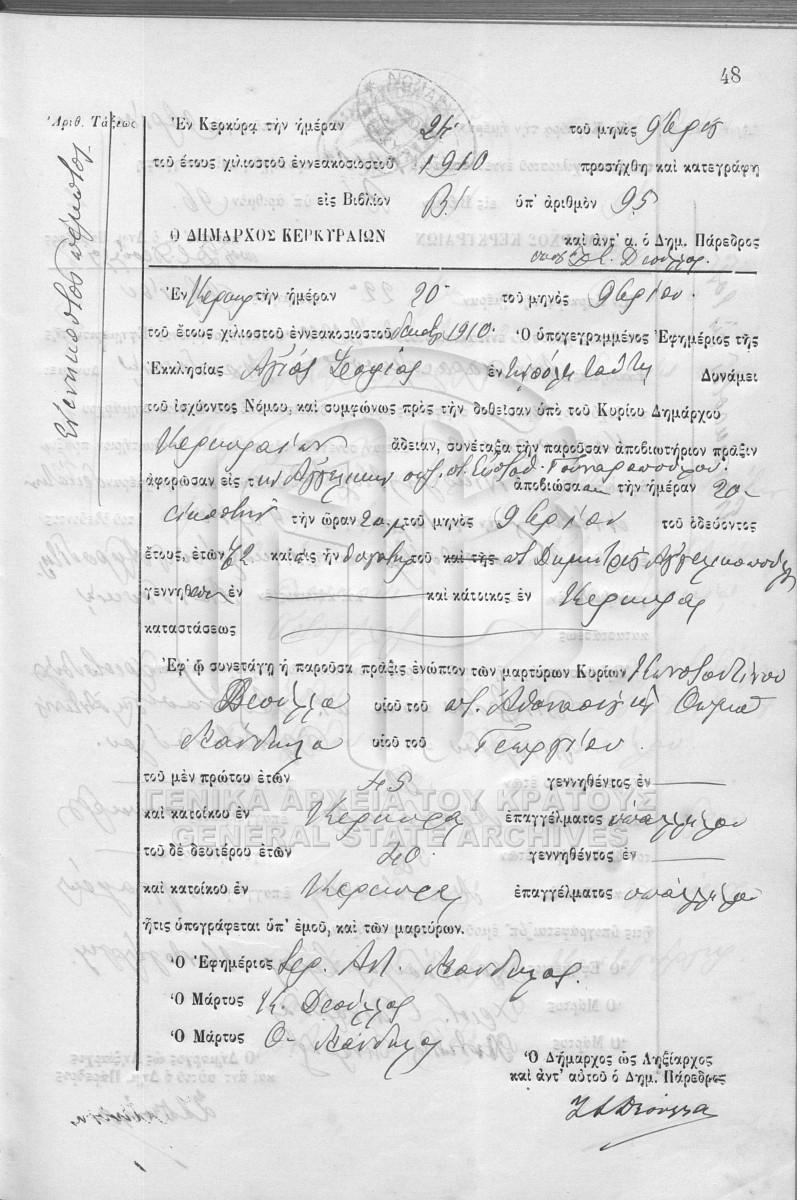 48
Ἀριθ. Τάξεως
Ἐν Κερκύρᾳ τὴν ἡμέραν 24 τοῦ μηνὸς 9βρίου
τοῦ ἔτους χιλιοστοῦ ἐννεακοσιοστοῦ 1910 προσήχθη καὶ κατεγράφη
εἰς Βιβλίον Β' ὑπ' ἀριθμὸν 95
Ὁ ΔΗΜΑΡΧΟΣ ΚΕΡΚΥΡΑΙΩΝ καὶ ἀντ' α. ὁ Δημ. Πάρεδρος
Ἐνενηκοστὸς πέμπτος
Ἐν Κερκύρᾳ τὴν ἡμέραν 20 τοῦ μηνὸς 9βρίου
τοῦ ἔτους χιλιοστοῦ ἐννεακοσιοστοῦ δεκάτου 1910. Ὁ ὑπογεγραμμένος Ἐφημέριος τῆς
Ἐκκλησίας Ἁγίας Σοφίας ἐν τῇ πόλει ταύτῃ Δυνάμει
τοῦ ἰσχύοντος Νόμου, καὶ συμφώνως πρὸς τὴν δοθεῖσαν ὑπὸ τοῦ Κυρίου Δημάρχου
Κερκυραίων ἄδειαν, συνέταξα τὴν παροῦσαν ἀποβιωτήριον πρᾶξιν
ἀφορῶσαν εἰς τὴν Ἀγγελικὴν
ἀποβιώσασαν τὴν ἡμέραν 20
εἰκοστὴν τὴν ὥραν τοῦ μηνὸς 9βρίου τοῦ ὁδεύοντος
ἔτους, ἐτῶν 72 καὶ εἰς ἣν θυγάτηρ τοῦ καὶ τῆς π. Δημητρίου
γεννηθεῖσαν ἐν καὶ κάτοικος ἐν Κερκύρᾳ
καταστάσεως
Ἐφ' ᾧ συνετάγη ἡ παροῦσα πρᾶξις ἐνώπιον τῶν μαρτύρων Κυρίων Κωνσταντίνου
Δεσύλλα υἱοῦ τοῦ π. Ἀθανασίου καὶ Θωμᾶ
Κάνδηλα υἱοῦ τοῦ Γεωργίου.
τοῦ μὲν πρώτου ἐτῶν 45 γεννηθέντος ἐν
ΓΕΝΙΚΑ ΑΡΧΕΙΑ ΤΟΥ ΚΡΑΤΟΥΣ
καὶ κατοίκου ἐν Κερκύρᾳ ἐπαγγέλματος ὑπαλλήλου
GENERAL STATE ARCHIVES
τοῦ δὲ δευτέρου ἐτῶν 40. γεννηθέντος ἐν
καὶ κατοίκου ἐν Κερκύρᾳ ἐπαγγέλματος ὑπαλλήλου
ἥτις ὑπογράφεται ὑπ' ἐμοῦ, καὶ τῶν μαρτύρων.
Ὁ Ἐφημέριος Κάνδηλας.
Ὁ Μάρτυς Κ. Δεσύλλας
Ὁ Μάρτυς Θ. Κάνδηλας
Ὁ Δήμαρχος ὡς Ληξίαρχος
καὶ ἀντ' αὐτοῦ ὁ Δημ. Πάρεδρος